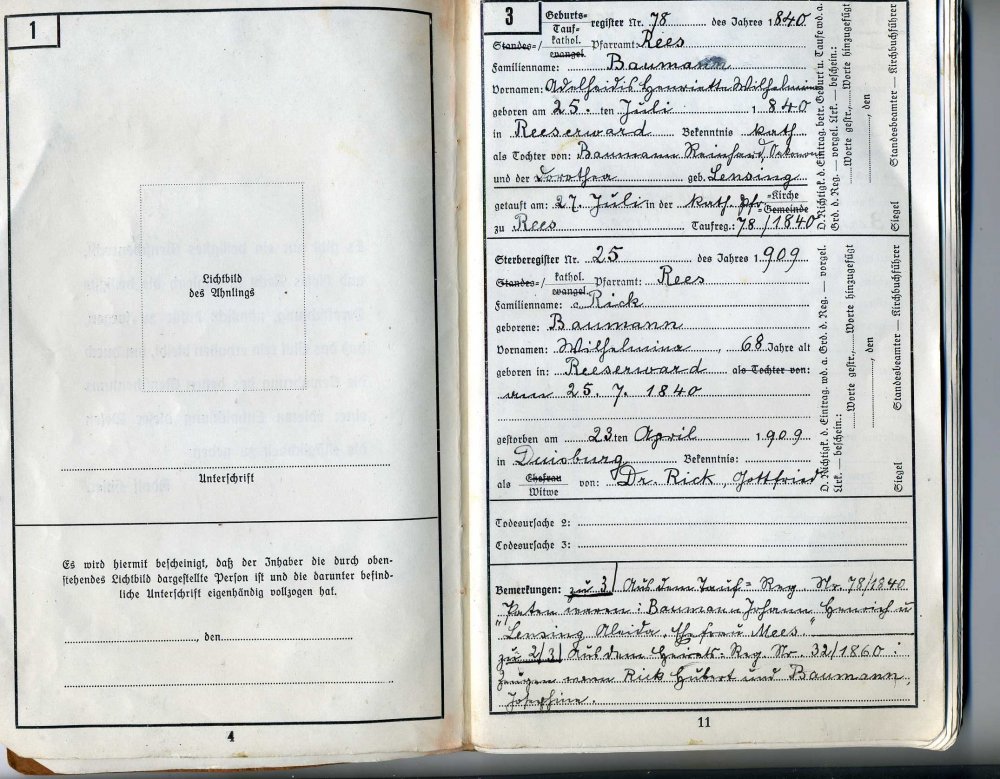 1
Lichtbild
des Ahnlings
Unterschrift
Es wird hiermit bescheinigt, daß der Inhaber die durch oben-
stehendes Lichtbild dargestellte Person ist und die darunter befind-
liche Unterschrift eigenhändig vollzogen hat.
, den
4
3
Geburts=
Tauf= register Nr. 78 des Jahres 1840
Standes=/ kathol. evangel. Pfarramt: Rees
Familienname: Baumann
Vornamen: Adelheidis Henriette Wilhelmine
geboren am 25. ten Juli 1840
in Reeserward Bekenntnis kath
als Tochter von: Baumann Reinhard,
und der Dorothea geb. Lensing
getauft am: 27. Juli in der kath. Pfr. =Kirche =Gemeinde
zu Rees Taufreg.: 78/1840
D. Richtigk. d. Eintrag. betr. Geburt u. Taufe wd. a.
Grd. d. Reg. — vorgel. Urk. — beschein.:
Worte gestr., Worte hinzugefügt
, den
Siegel Standesbeamter — Kirchbuchführer
Sterberegister Nr. 25 des Jahres 1909
Standes=/ kathol. evangel. Pfarramt: Rees
Familienname: Rick
geborene: Baumann
Vornamen: Wilhelmine, 68 Jahre alt
geboren in: Reeserward als Tochter von:
am 25. 7. 1840
gestorben am 23. ten April 1909
in Duisburg Bekenntnis:
als Ehefrau Witwe von: Dr. Rick, Gottfried
D. Richtigk. d. Eintrag. wd. a. Grd. d. Reg. — vorgel.
Urk. — beschein.:
Worte gestr., Worte hinzugefügt
, den
Siegel Standesbeamter — Kirchbuchführer
Todesursache 2:
Todesursache 3:
Bemerkungen: zu 3/ Aus dem Tauf=Reg Nr. 78/1840
Paten waren: Baumann Johann Henrich u
"Lensing Aleida, Ehefrau Mees".
zu 2/3/ Aus dem Heirats-Reg Nr. 32/1860:
Zeugen waren Rick Hubert und Baumann,
Josephine.
11